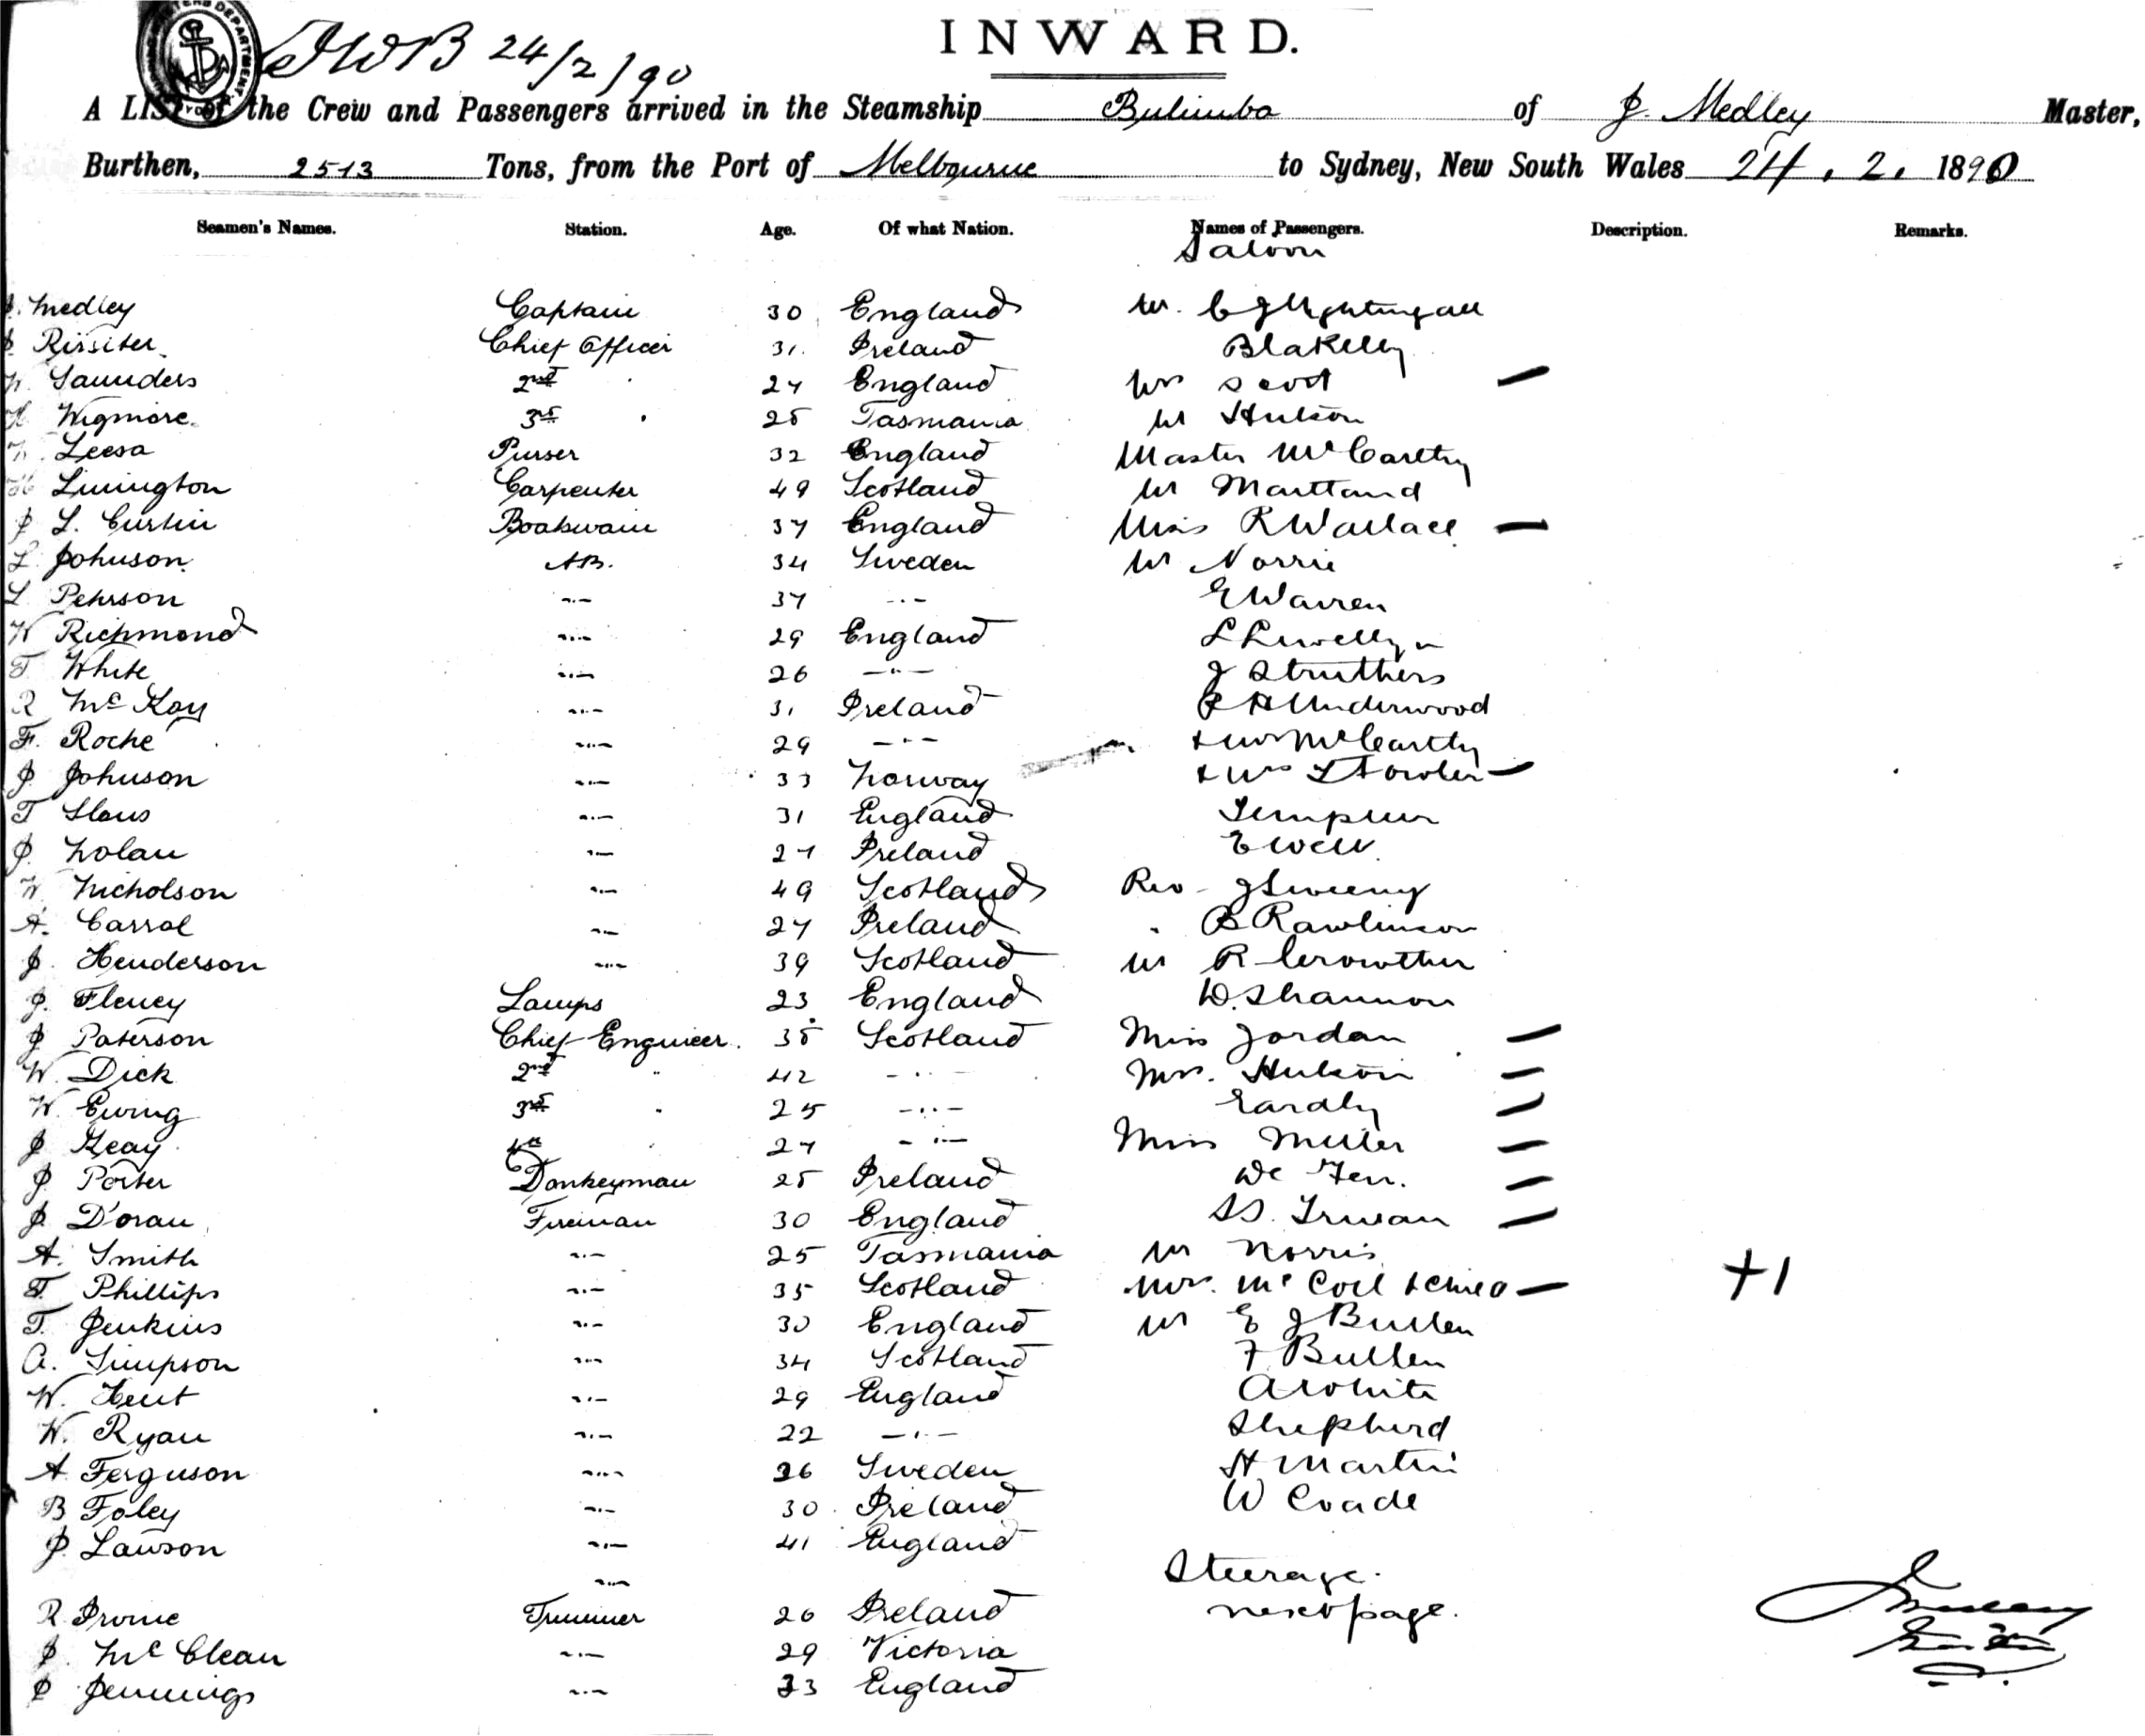 JWB 24/2/90
INWARD.
A LIST of the Crew and Passengers arrived in the Steamship Bulimba of J. Medley Master,
Burthen, 2513 Tons, from the Port of Melbourne to Sydney, New South Wales 24. 2. 1890
Seamen's Names. Station. Age. Of what Nation. Names of Passengers. Description. Remarks.
Saloon
J. Medley Captain 30 England Mr. C J Nightingall
Chief Officer 31. Ireland Blakeley
Saunders 2nd " 27 England Mrs Scott —
Wigmore 3rd " 25 Tasmania Mr Hutson
Leesa Purser 32 England Master McCarthy
Livington Carpenter 49 Scotland Mr Maitland
J L. Curtin Boatswain 37 England Miss R Wallace —
L Johnson AB. 34 Sweden Mr Norrie
L Pehrson -"- 37 -"- E Warren
W Richmond -"- 29 England Llewellyn
T White -"- 26 -"- J Struthers
R McKay -"- 31 Ireland R H Underwood
F. Roche -"- 29 -"- + Mrs McCarthy
J. Johnson -"- 33 Norway + Mrs L Fowler —
T -"- 31 England
J. Nolan -"- 27 Ireland
W Nicholson -"- 49 Scotland Rev J Sweeny
A. Carrol -"- 27 Ireland " B Rawlinson
J. Henderson -"- 39 Scotland Mr R Crowther
J. Lamps 23 England W. Shannon
J Paterson Chief Engineer. 35 Scotland Miss Jordan —
W Dick 2nd " 42 -"- Mrs. Hutson —
W. Ewing 3rd " 25 -"- Eardly —
J Keay 4th " 27 -"- Miss Miller —
J. Porter Donkeyman 25 Ireland —
J. Doran Fireman 30 England —
A. Smith -"- 25 Tasmania Mr Norris
T. Phillips -"- 35 Scotland Mrs. McColl + child — +1
T. Jenkins -"- 30 England Mr E J Bullen
A. Simpson -"- 34 Scotland F Bullen
W. Kent -"- 29 England A White
W. Ryan -"- 22 -"- Shepherd
A Ferguson -"- 26 Sweden H Martin
B Foley -"- 30 Ireland W Coade
J. Lawson -"- 41 England
-"- Steerage.
R Irvine Trimmer 26 Ireland next page.
J. McClean -"- 29 Victoria
J Jennings -"- 33 England